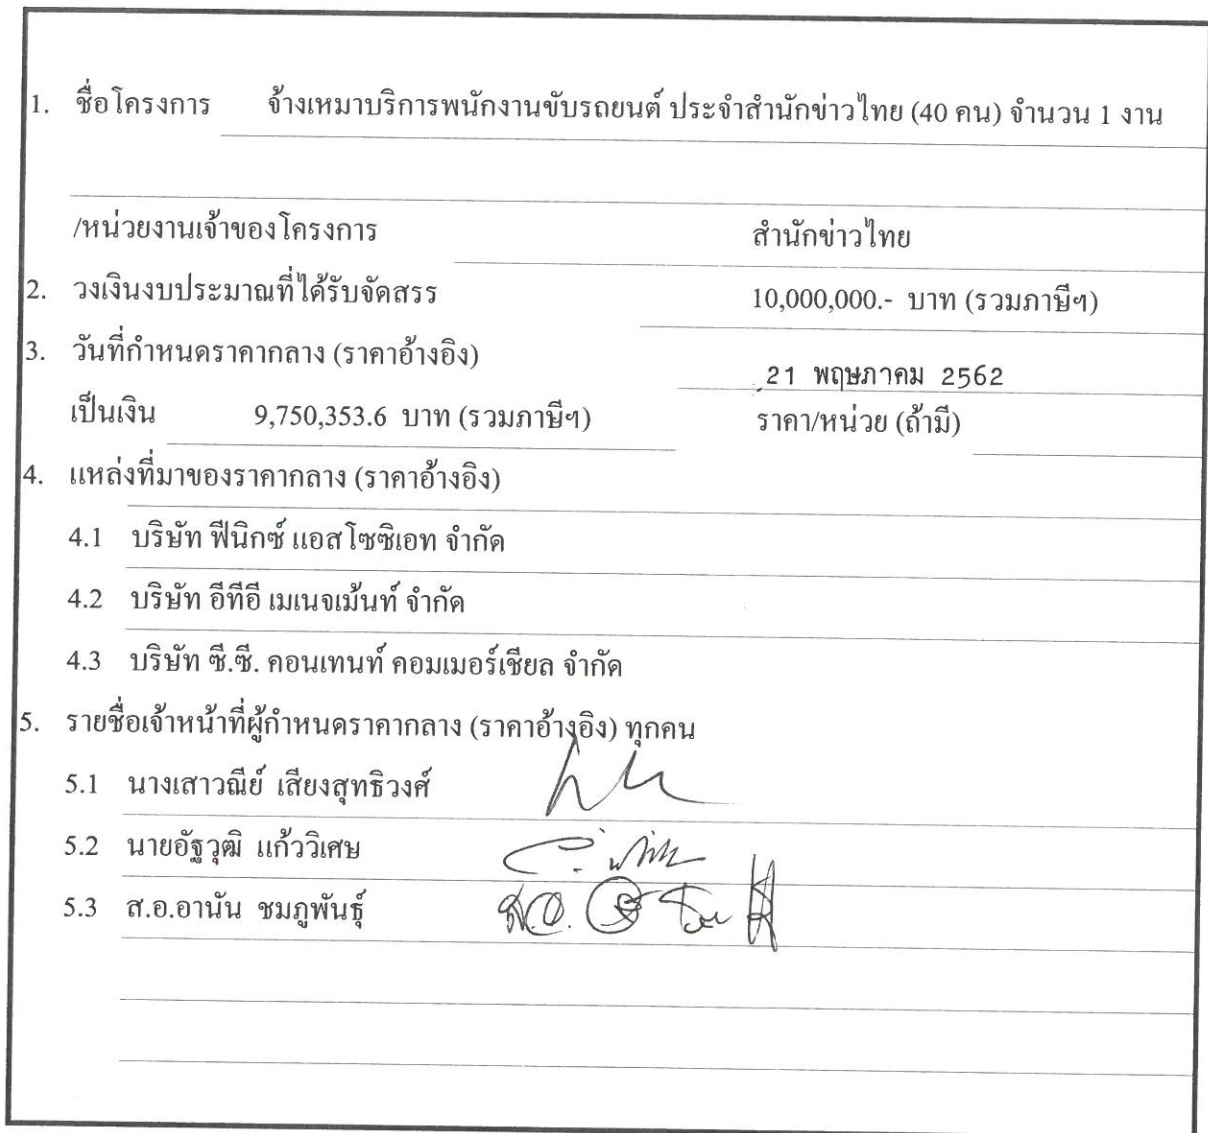 1. ชื่อโครงการ จ้างเหมาบริการพนักงานขับรถยนต์ ประจำสำนักข่าวไทย (40 คน) จำนวน 1 งาน
/หน่วยงานเจ้าของโครงการ สำนักข่าวไทย
2. วงเงินงบประมาณที่ได้รับจัดสรร 10,000,000.- บาท (รวมภาษีฯ)
3. วันที่กำหนดราคากลาง (ราคาอ้างอิง) 21 พฤษภาคม 2562
เป็นเงิน 9,750,353.6 บาท (รวมภาษีฯ) ราคา/หน่วย (ถ้ามี)
4. แหล่งที่มาของราคากลาง (ราคาอ้างอิง)
4.1 บริษัท ฟีนิกซ์ แอสโซซิเอท จำกัด
4.2 บริษัท อีทีอี เมเนจเม้นท์ จำกัด
4.3 บริษัท ซี.ซี. คอนเทนท์ คอมเมอร์เชียล จำกัด
5. รายชื่อเจ้าหน้าที่ผู้กำหนดราคากลาง (ราคาอ้างอิง) ทุกคน
5.1 นางเสาวณีย์ เสียงสุทธิวงศ์
5.2 นายอัฐวุฒิ แก้ววิเศษ
5.3 ส.อ.อานัน ชมภูพันธุ์ ส.อ.